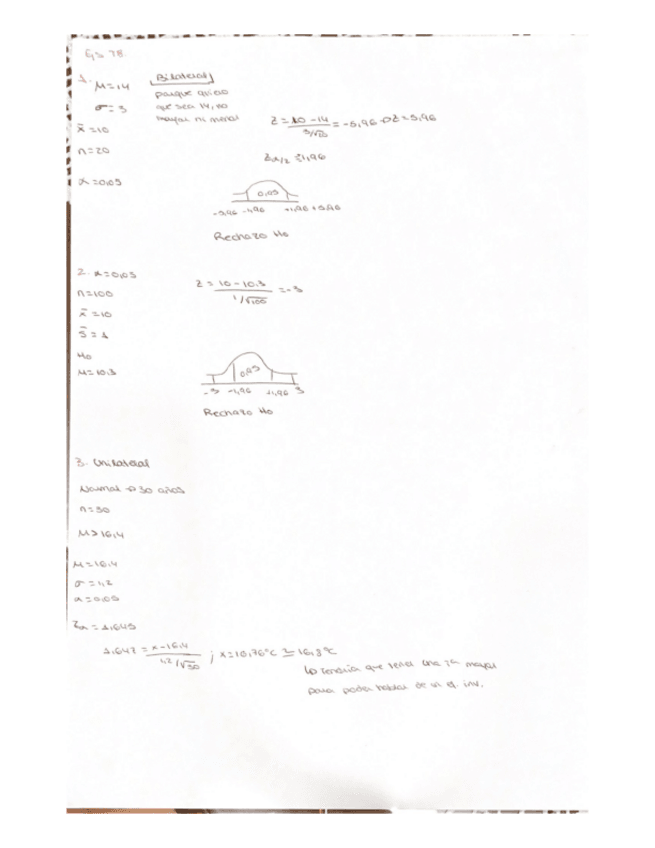 Ejs T8
1. μ=14
Bilateral
porque quiero
que sea 14, no
mayor ni menor
σ=3
x̄=10
n=20
α=0,05
Z = 10-14 / 3/√20 = -5,96 → Z=5,96
Zα/2 = 1,96
0,95
-5,96 -1,96 +1,96 +5,96
Rechazo Ho
2. α=0,05
n=100
x̄=10
S̄=1
Ho
μ=10.3
Z = 10-10.3 / 1/√100 = -3
0,95
-3 -1,96 +1,96 3
Rechazo Ho
3. Unilateral
Normal → 30 años
n=30
μ>16,4
μ=16,4
σ=1,2
α=0,05
Zα=1,645
1,645 = x-16,4 / 1,2/√30 ; x=16,76°C ≃ 16,8°C
↳ tendría que tener una μ mayor
para poder hablar de un ef. inv.